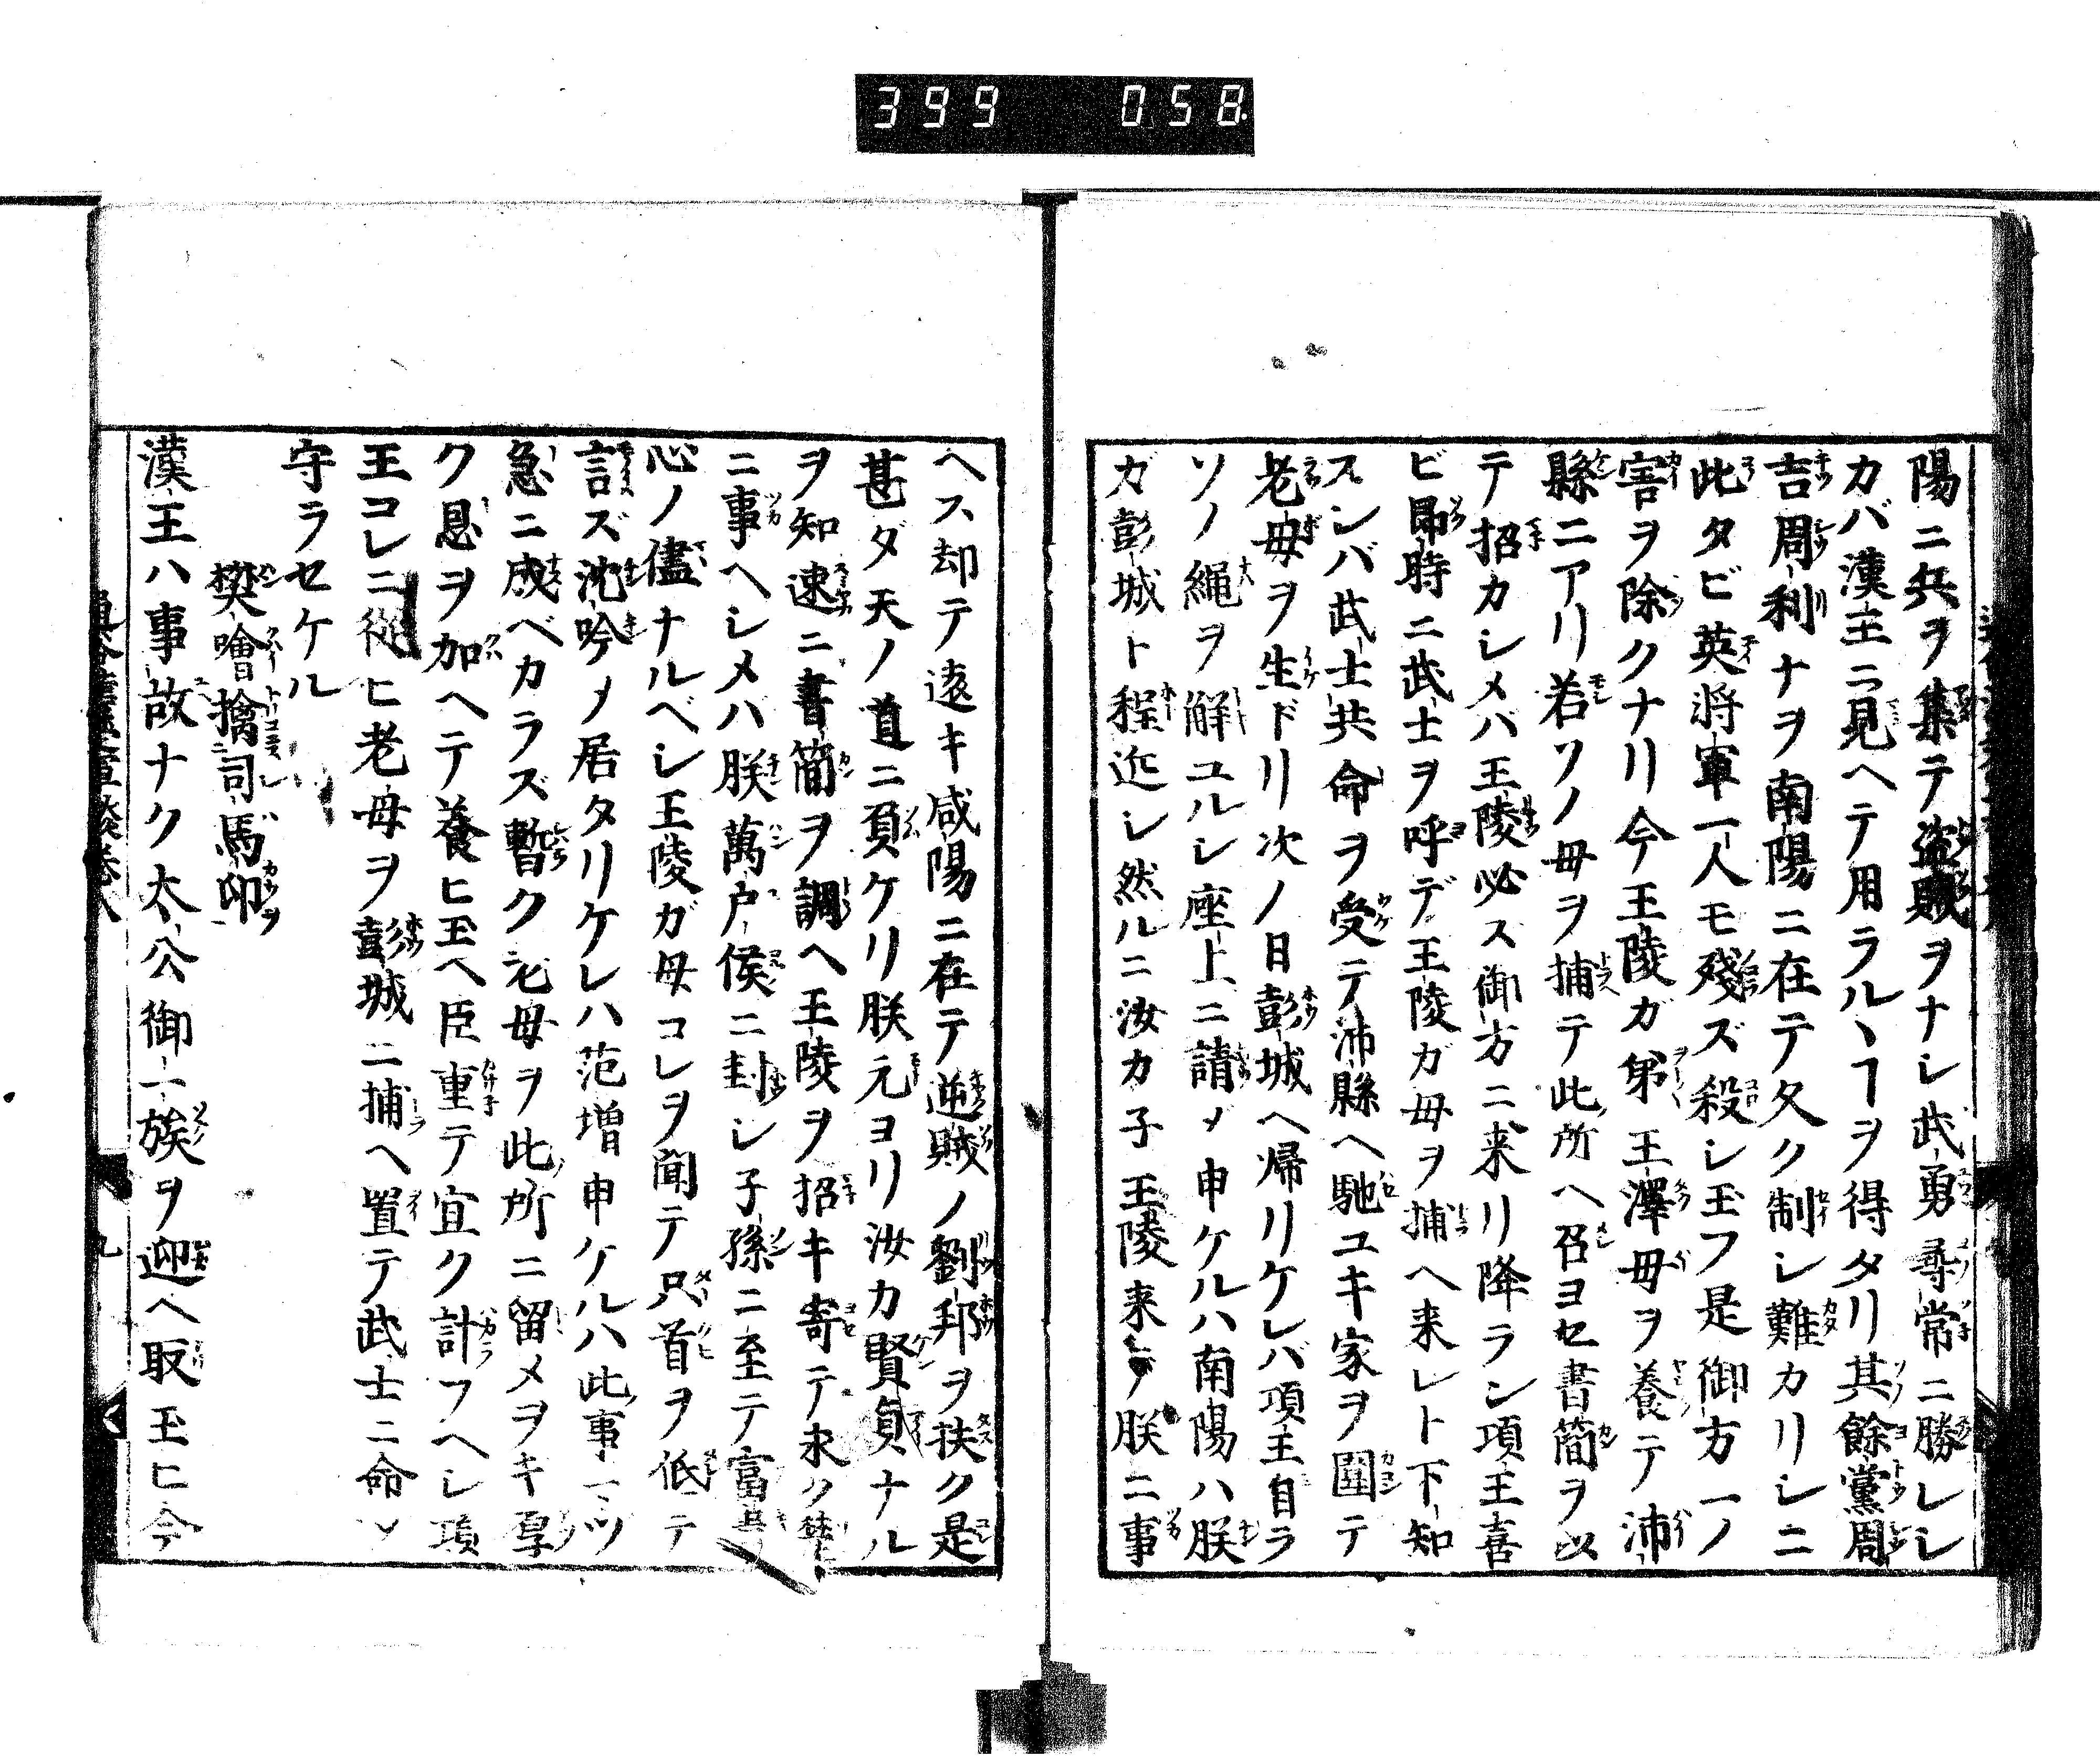 399 058
陽ニ兵ヲ集テ盗賊ヲナシ武勇尋常ニ勝レシ
カバ漢王ニ見ヘテ用ラルヽヿヲ得タリ其餘黨周
吉周利ナヲ南陽ニ在テ久ク制シ難カリシニ
此タビ英将軍一人モ殘ズ殺シ玉フ是御方一ノ
害ヲ除クナリ今王陵ガ弟王澤母ヲ養テ沛
縣ニアリ若ソノ母ヲ捕テ此所ヘ召ヨセ書簡ヲ以
テ招カシメバ王陵必ス御方ニ来リ降ラン項王喜
ビ即時ニ武士ヲ呼デ王陵ガ母ヲ捕ヘ来レト下知
スレバ武士共命ヲ受テ沛縣ヘ馳ユキ家ヲ圍テ
老毋ヲ生ドリ次ノ日彭城ヘ帰リケレバ項王自ラ
ソノ縄ヲ解ユルシ座上ニ請メ申ケルハ南陽ハ朕
ガ彭城ト程近シ然ルニ汝カ子王陵来テ朕ニ事
ヘス却テ遠キ咸陽ニ在テ逆賊ノ劉邦ヲ扶ク是
甚ダ天ノ道ニ負ケリ朕元ヨリ汝カ賢貞ナル
ヲ知速ニ書簡ヲ調ヘ王陵ヲ招キ寄テ永ク楚
ニ事ヘシメハ朕萬戸侯ニ封シ子孫ニ至テ富貴
心ノ儘ナルベシ王陵ガ母コレヲ聞テ只首ヲ低テ
言ズ沈吟メ居タリケレハ范増申ケルハ此事一ツ
急ニ成ベカラズ暫ク老母ヲ此所ニ留メヲキ厚
ク恩ヲ加ヘテ養ヒ玉ヘ臣重テ宜ク計フヘシ項
王コレニ從ヒ老母ヲ彭城ニ捕ヘ置テ武士ニ命メ
守ラセケル
樊噲擒司馬卬
漢王ハ事故ナク太公御一族ヲ迎ヘ取玉ヒ今
九